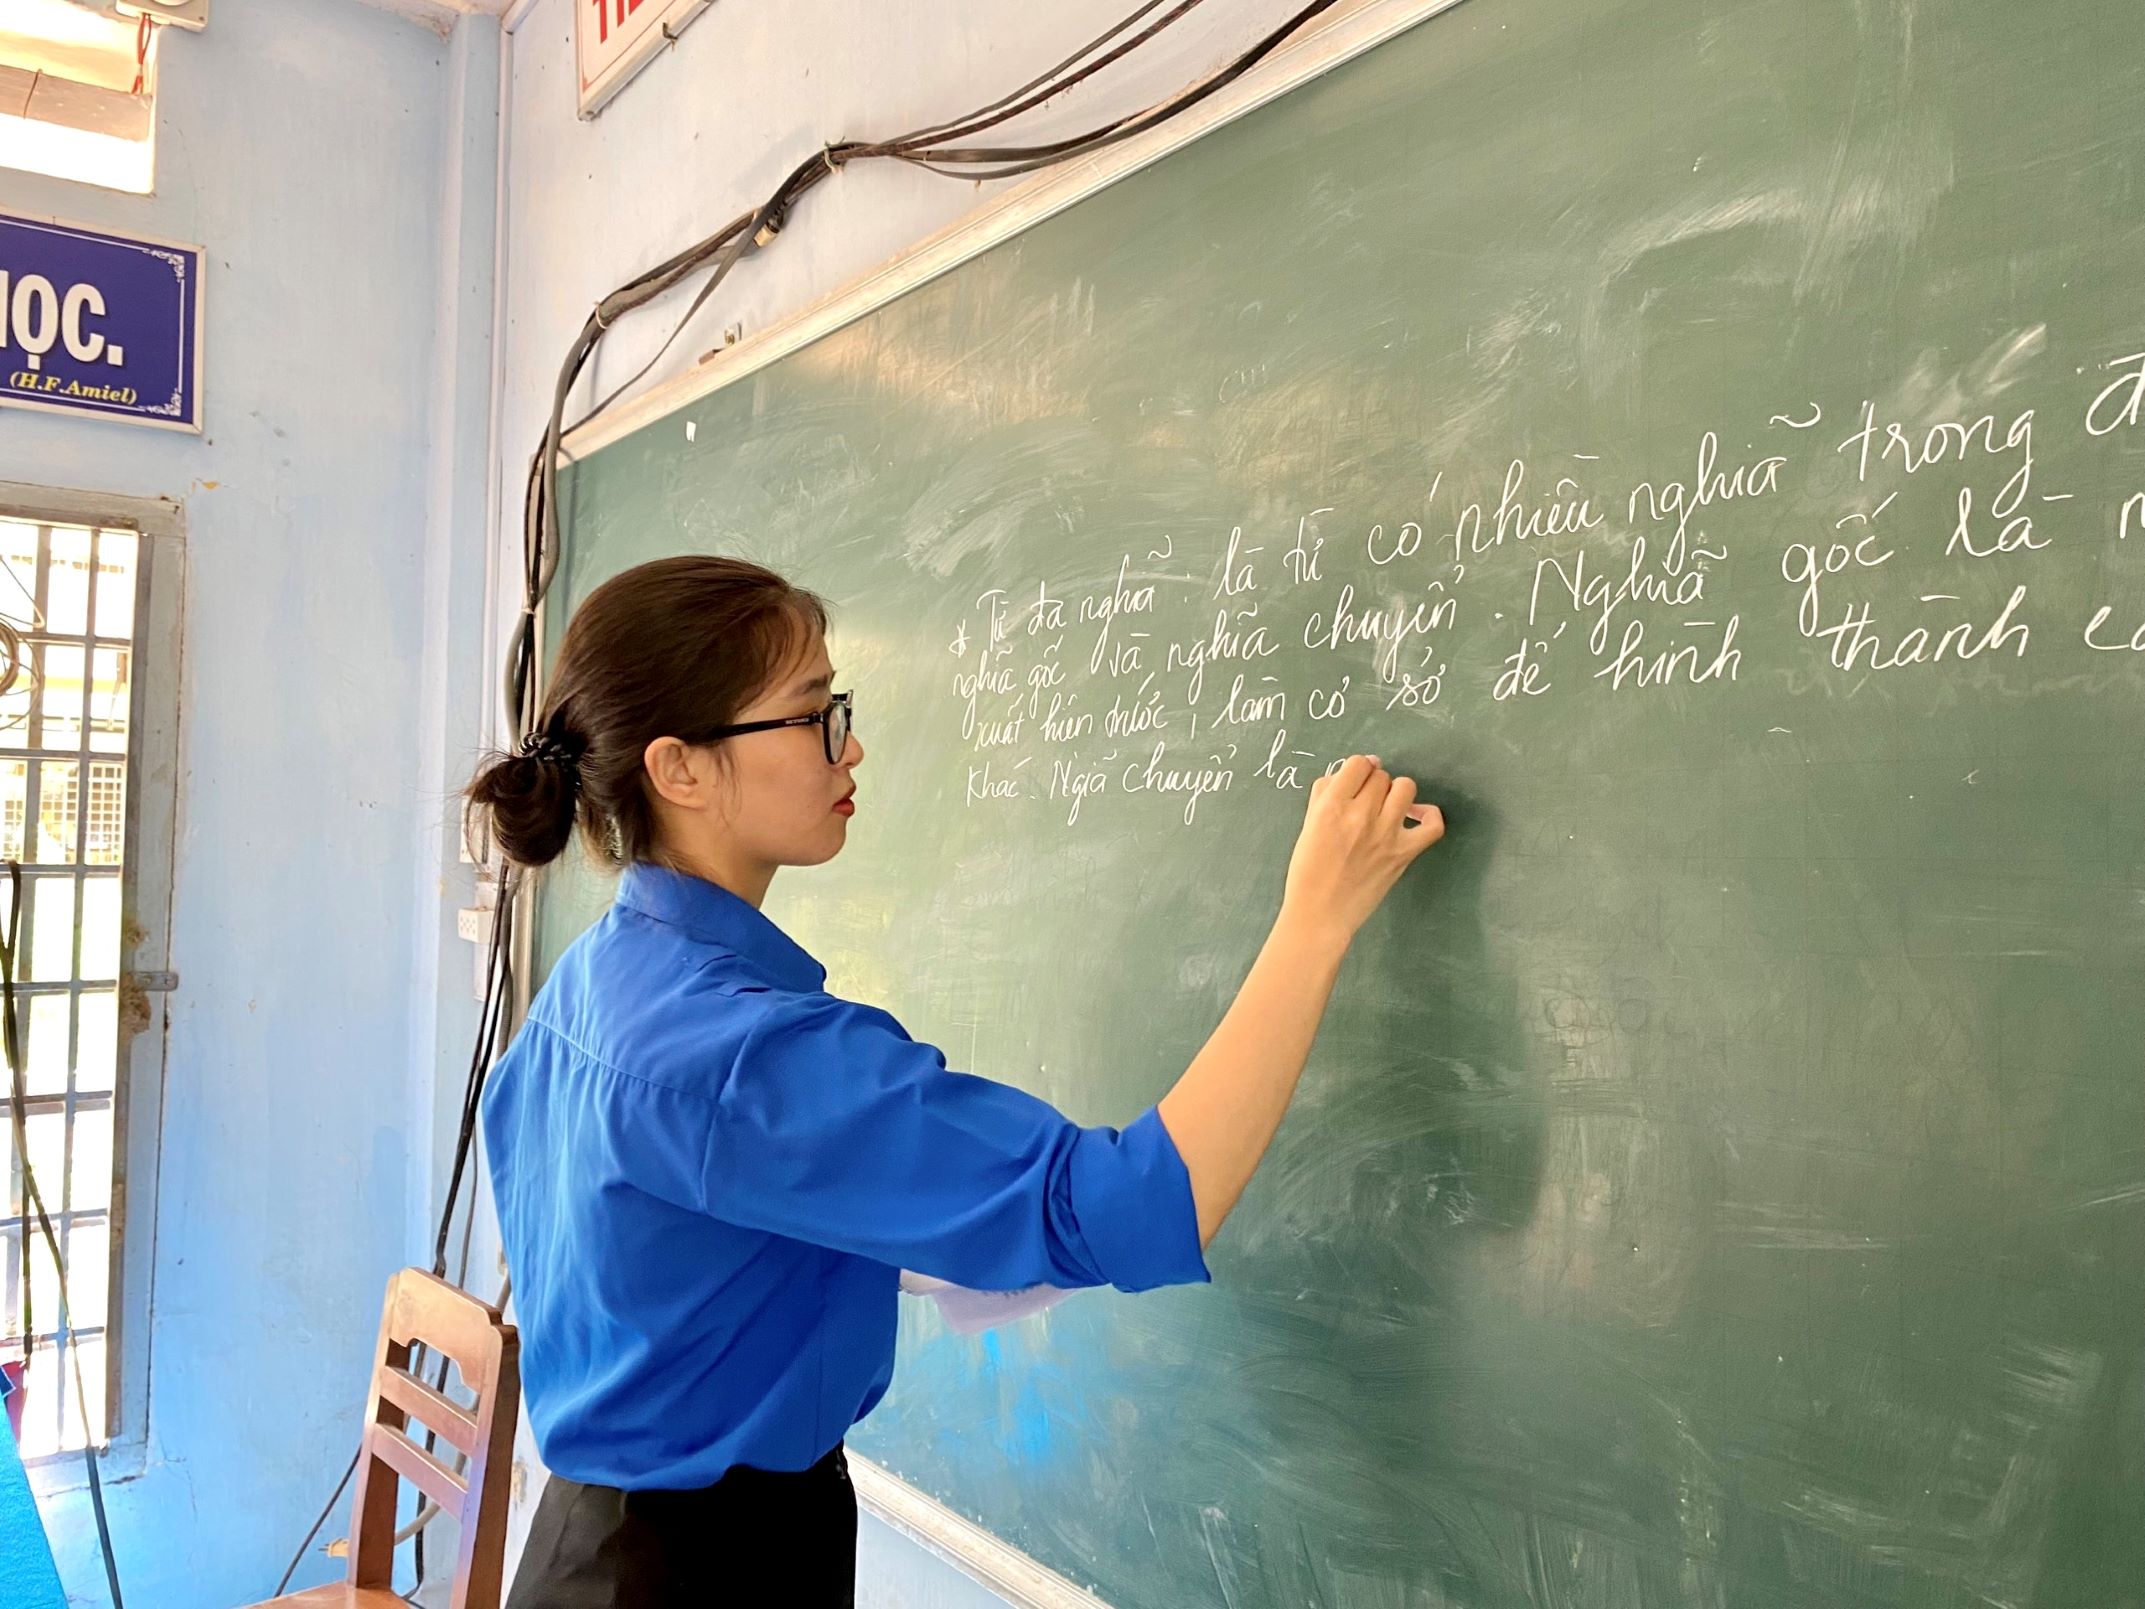 ỌC.
(H.F.Amiel)
* Từ đa nghĩa : là từ có nhiều nghĩa trong đ
nghĩa gốc và nghĩa chuyển. Nghĩa gốc là n
xuất hiện trước, làm cơ sở để hình thành c
khác. Ngiã chuyển là n